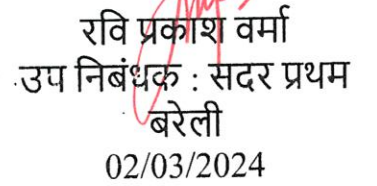 रवि प्रकाश वर्मा
उप निबंधक : सदर प्रथम
बरेली
02/03/2024